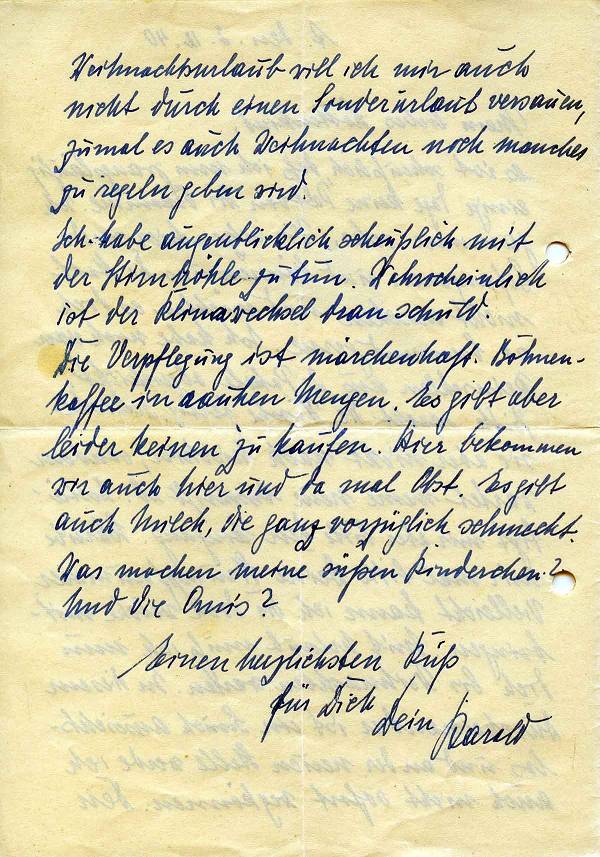 Weihnachtsurlaub will ich mir auch
nicht durch einen Sonderurlaub versauen,
zumal es auch Weihnachten noch manches
zu regeln geben wird.
Ich habe augenblicklich scheußlich mit
der Stirnhöhle zu tun. Wahrscheinlich
ist der Klimawechsel dran schuld.
Die Verpflegung ist märchenhaft. Bohnen-
kaffee in rauhen Mengen. Es gibt aber
leider keinen zu kaufen. Hier bekommen
wir auch hier und da mal Obst. Es gibt
auch Milch, die ganz vorzüglich schmeckt.
Was machen meine süßen Kinderchen?
Und die Omis?
Einen herzlichsten Kuß
für Dich
Dein